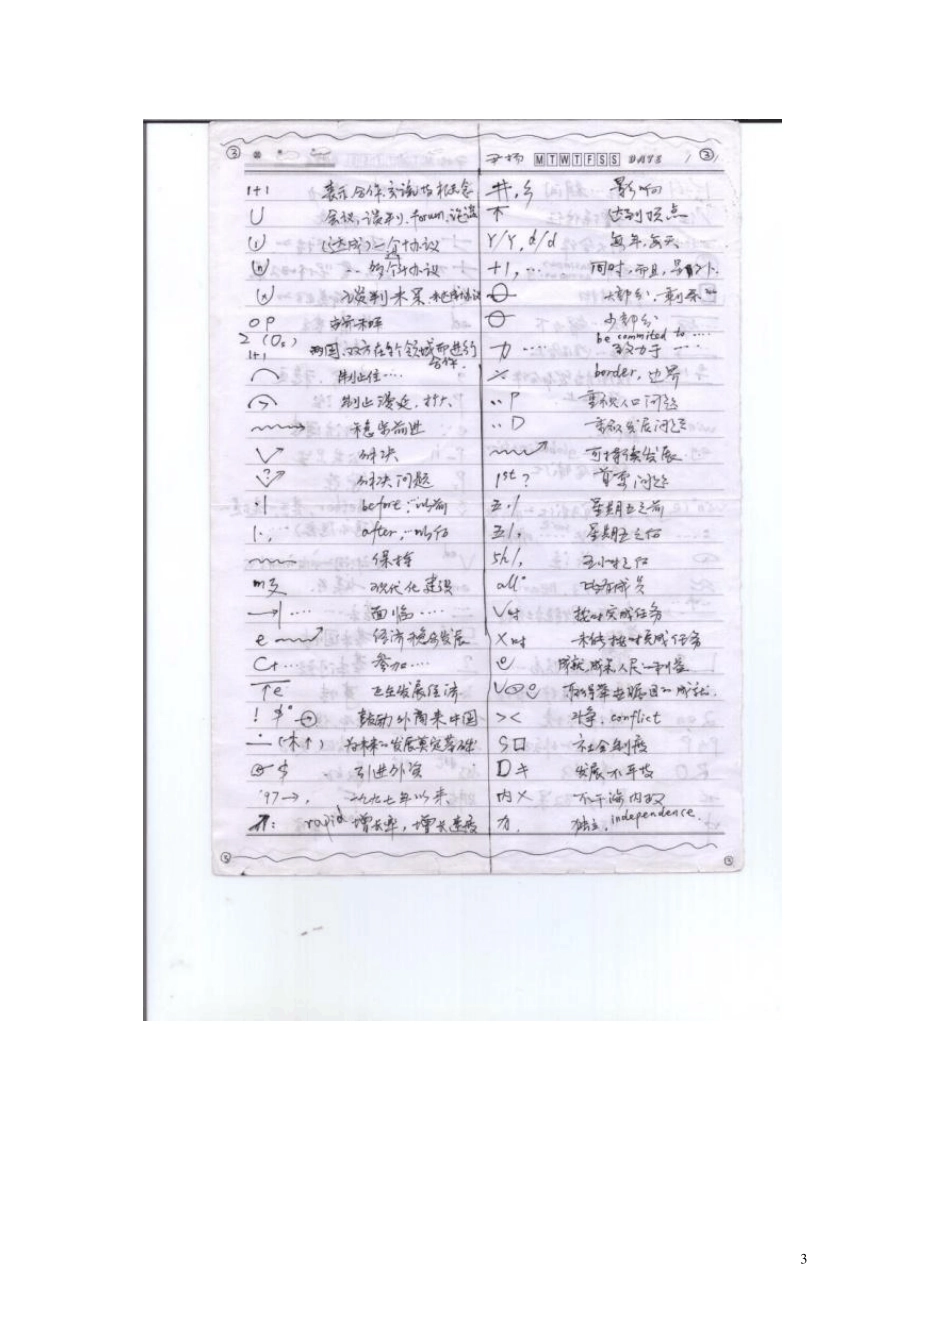 ③
MTWTFSS DATE / ③
1+1 表示合作,交流
∪ 会谈,谈判, forum, 论坛
(达成)一个协议
协议
谈判未果,未达成协议
OP
2 (Os) 两国,双方在各个领域都进行
1+1 合作.
制止住....
制止漫延,扩大
稳步前进
解决
? 解决问题
·| before, ...以前
|·, after, ...以后
保持
m 现代化建设
→| .... 面临....
e 经济稳步发展
C+... 参加....
e 正在发展经济
! $° 鼓励外商来中国
(未↑) 为未来的发展奠定基础
$ 引进外资
'97→, 一九九七年以来
: rapid 增长率,增长速度
井, 乡 影响
不 达到顶点
Y/Y, d/d 每年,每天
+1, ... 同时,而且,另外
大部分,
少部分
be commited to ....
力 .... 致力于 ....
border, 边界
‥P 重视人口问题
‥D 重视发展问题
可持续发展
1st ? 首要问题
五·/ 星期五之前
五/· 星期五之后
5h/, 五小时之后
all° 所有成员
√时 按时完成任务
×时 未能按时完成任务
e
√ 取得举世瞩目的成就.
>< 斗争, conflict
S口 社会制度
D 发展不平
内× 不干涉内政
力. 独立, independence.
⑤
⑤
3